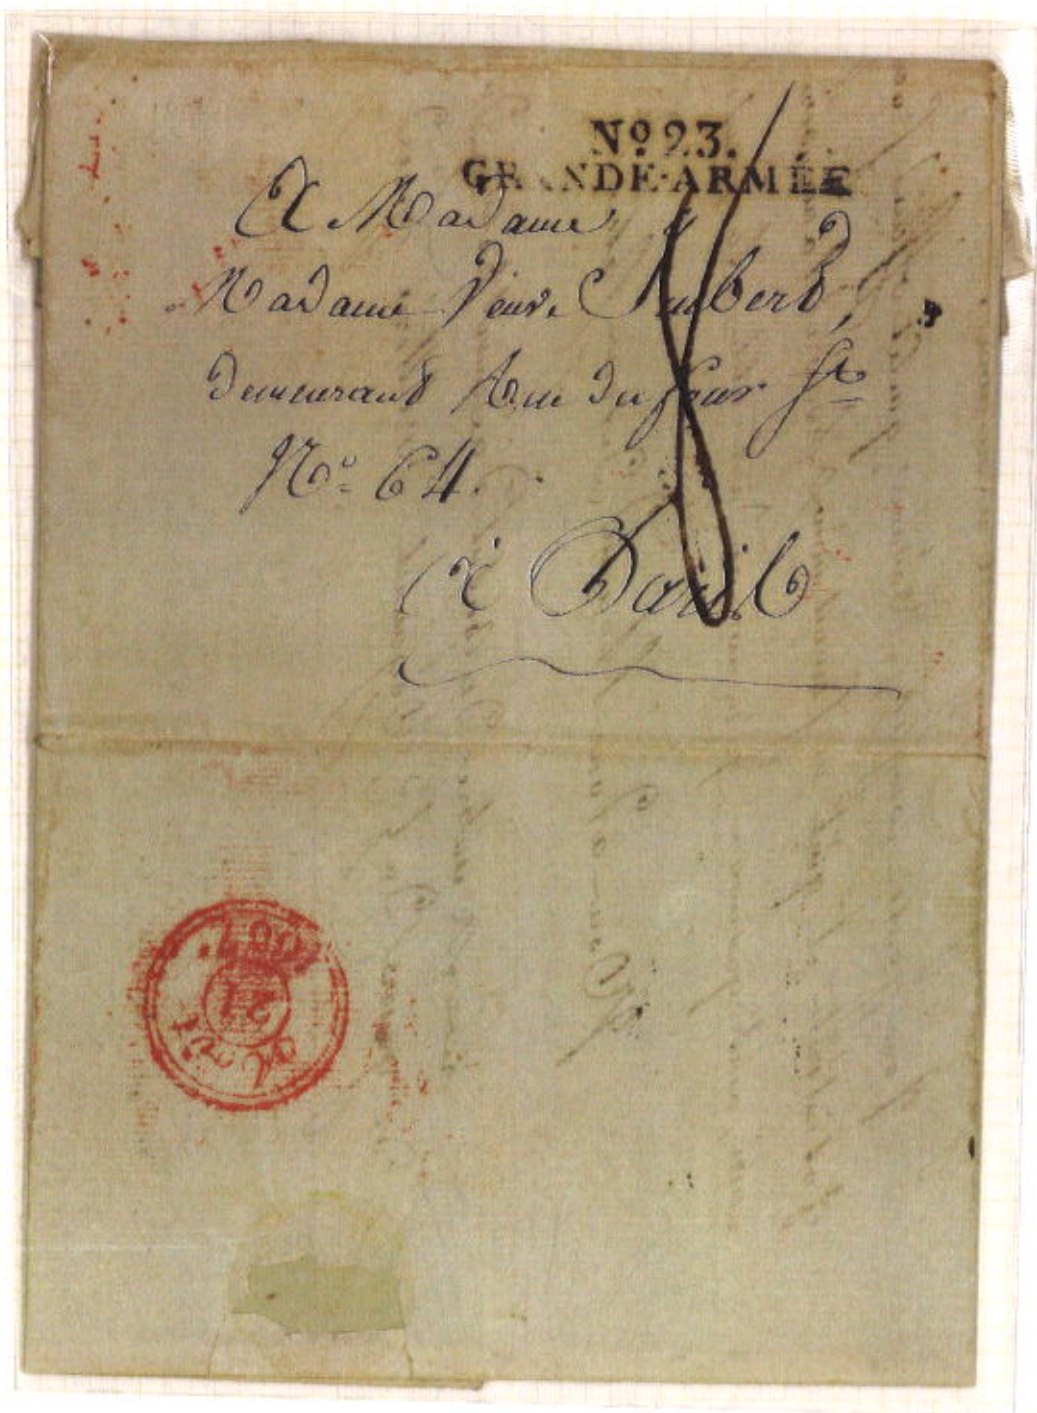 No 23.
GRANDE-ARMÉE
A Madame
Madame Veuve
demeurant Rue du four St
No. 64.
à Paris
8
Avril
21
1807.